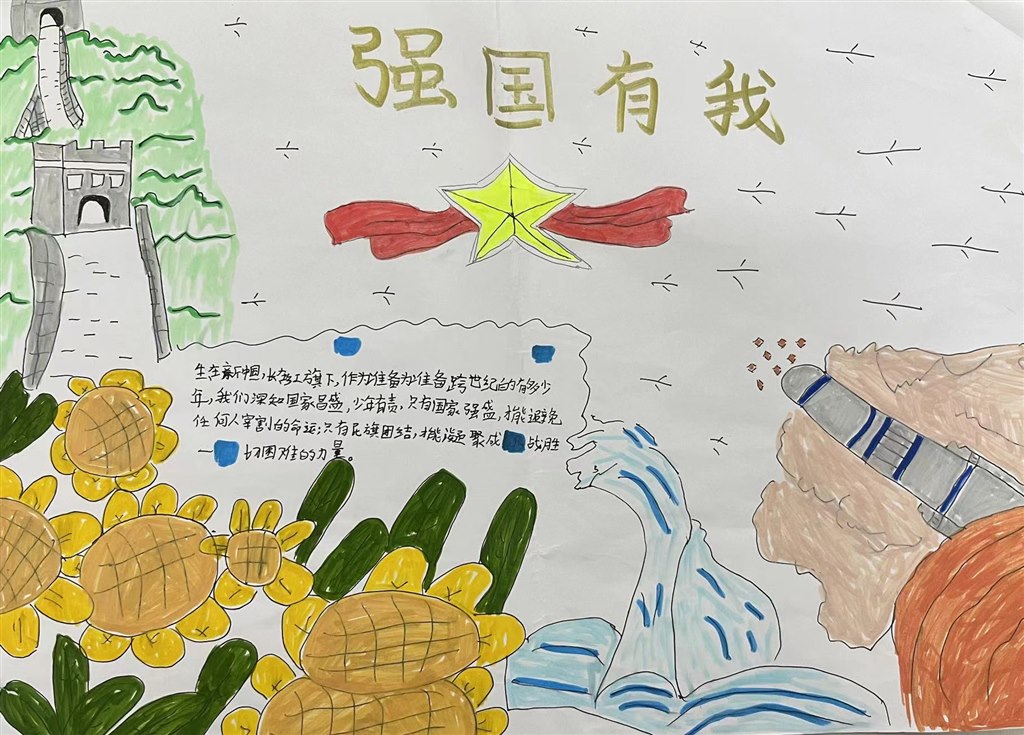 强国有我
生在新中国,长在红旗下,作为准备为准备,跨世纪的有多少
年,我们深知国家昌盛,少年有责,只有国家强盛,才能避免
任何人宰割的命运;只有民族团结,才能凝聚成战胜
一切困难的力量。